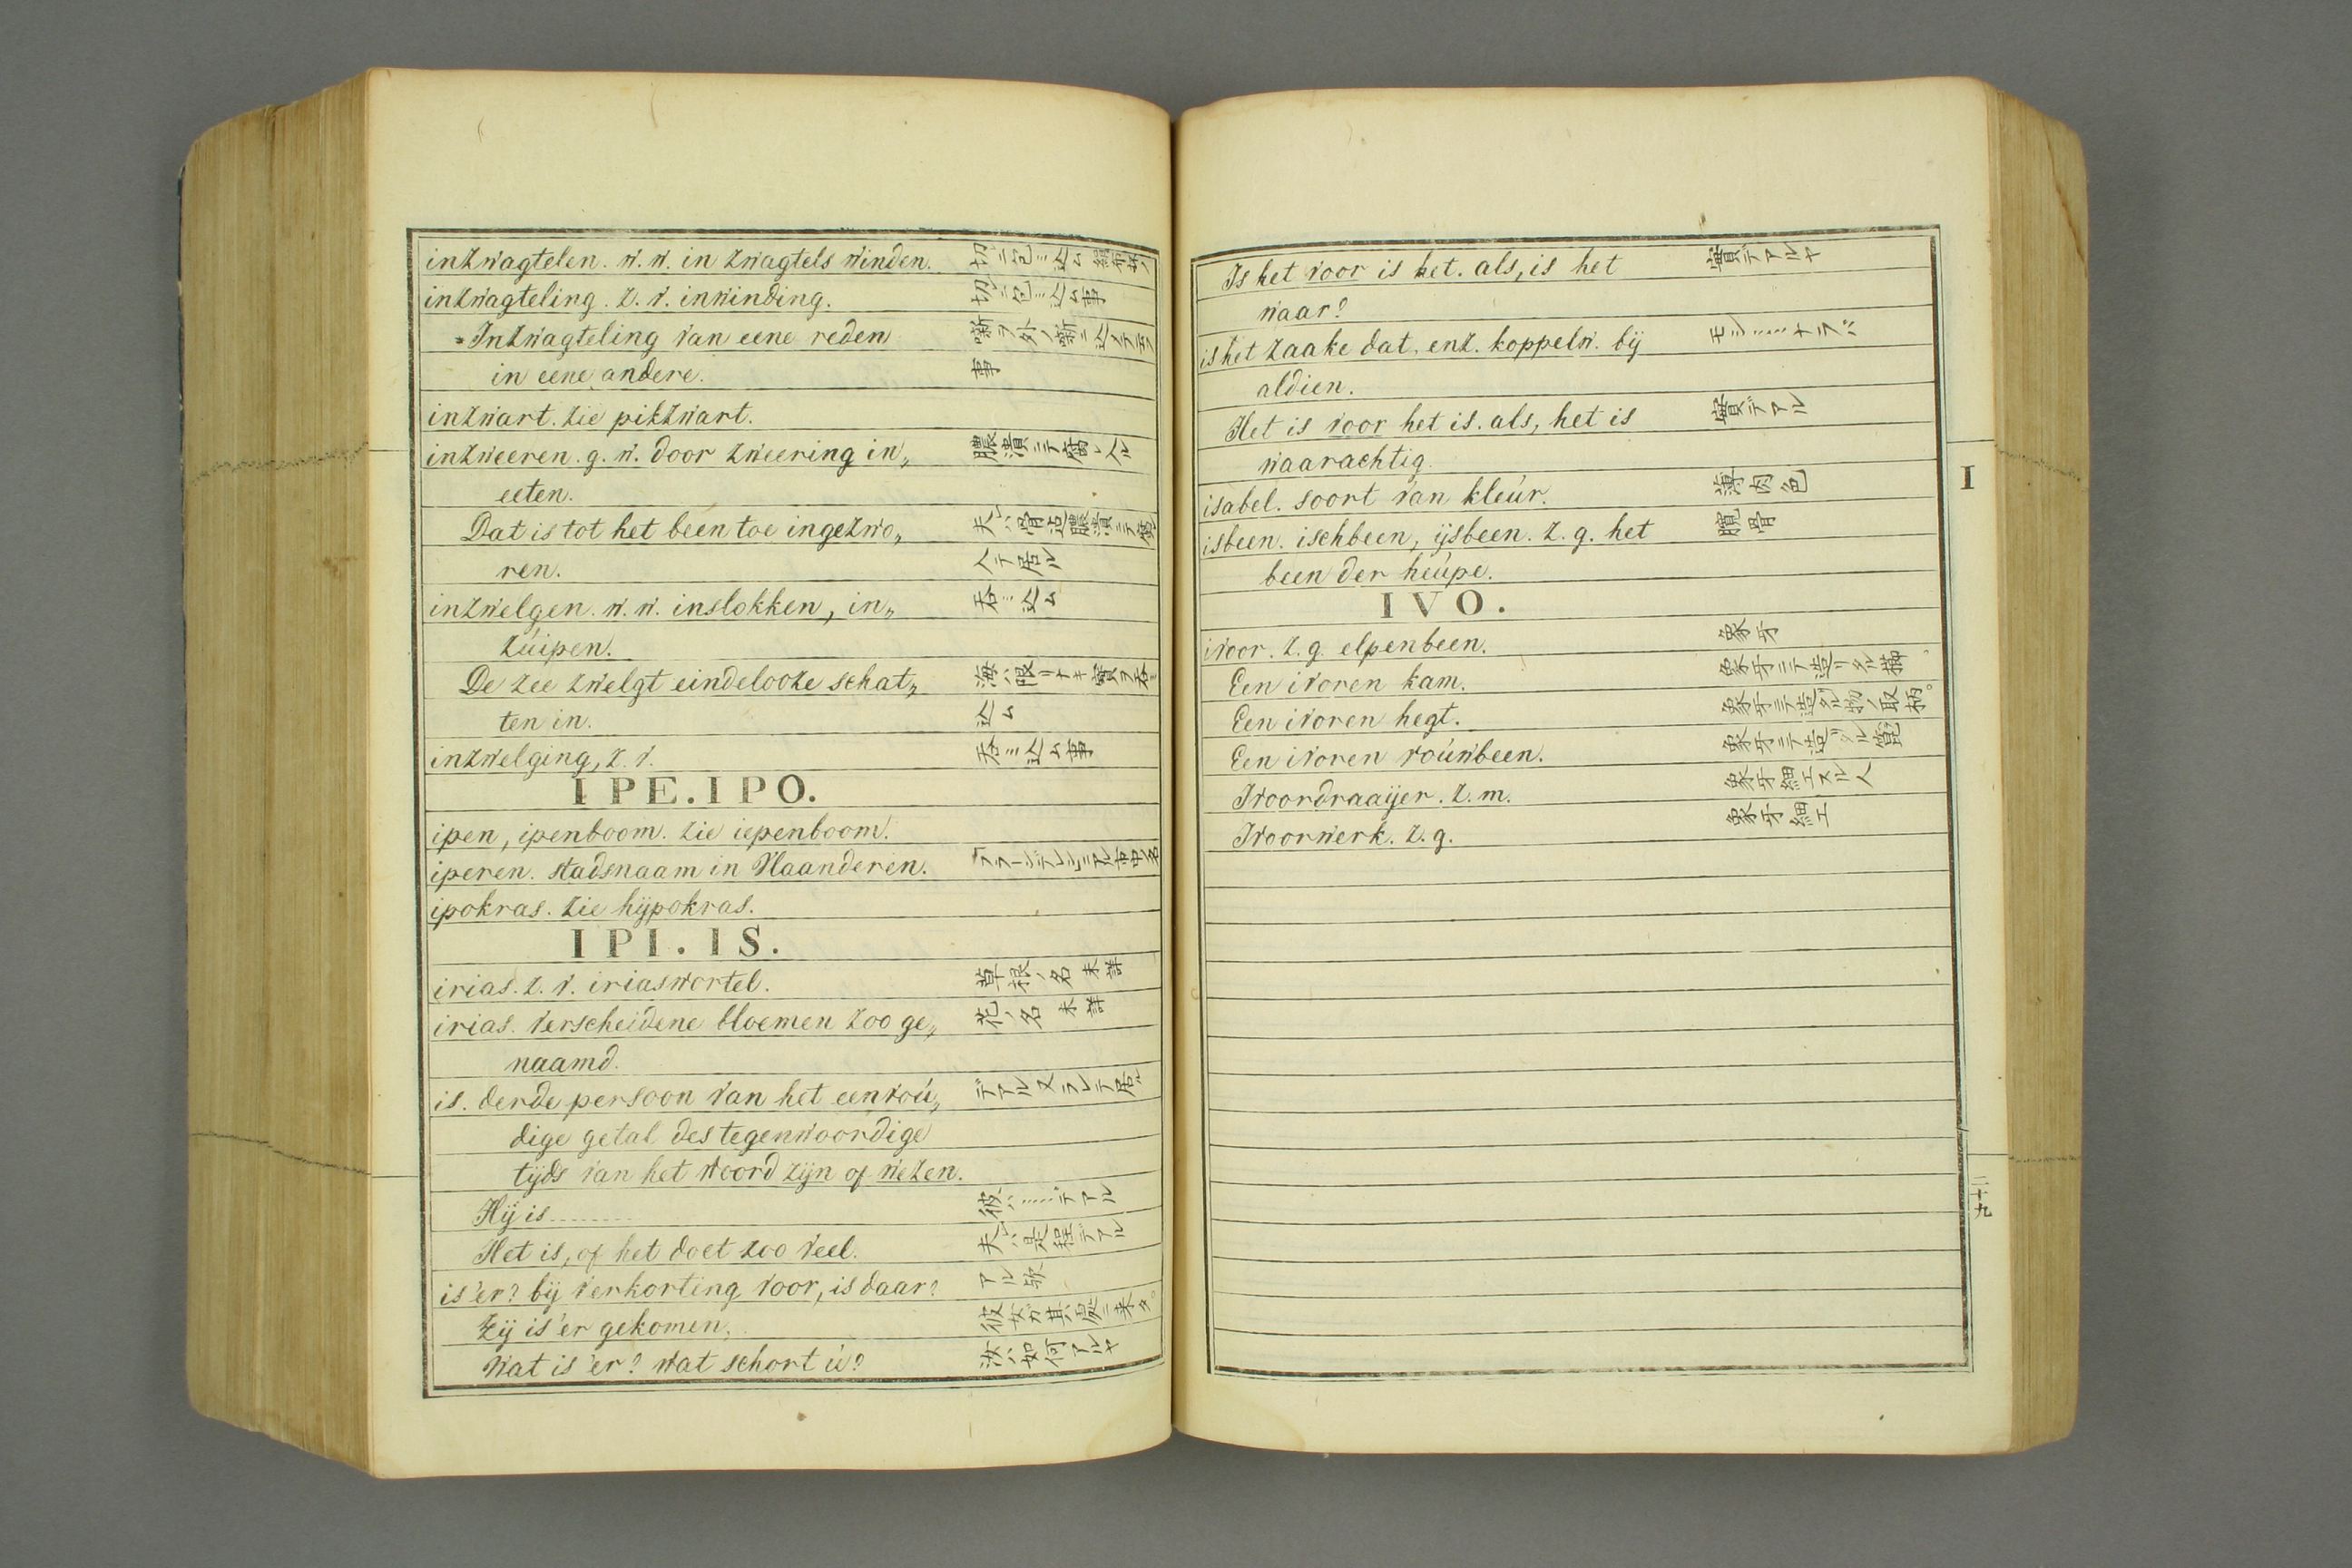 inzwagtelen. w. w. in zwagtels winden. 切ニ包ミ込ム
inzwagteling. z. v. inwinding. 切ニ包ミ込ム事
Inzwagteling van eene reden 噺ヲ外ノ噺ニ込メテ云フ
in eene andere. 事
inzwart. zie pikzwart.
inzweeren. g. w. door zweering in„ 膿潰テ腐レ入ル
eeten.
Dat is tot het been toe ingezwo„ 夫ハ骨迄膿潰テ腐レ
ren. 入テ居ル
inzwelgen. w. w. inslokken, in„ 呑ミ込ム
zúipen.
De zee zwelgt eindelooze schat„ 海ハ限リナキ寳ヲ呑ミ
ten in. 込ム
inzwelging, z. v. 呑ミ込ム事
IPE. IPO.
ipen, ipenboom. zie iepenboom.
iperen. stadsnaam in Vlaanderen.
ipokras. zie hijpokras.
IPI. IS.
irias. z. v. iriaswortel. 草根ノ名 未詳
irias. verscheidene bloemen zoo ge„ 花ノ名 未詳
naamd.
is. derde persoon van het eenvoú„ デアル 又 ラレテ居ル
dige getal des tegenwoordige
tijds van het woord zijn of wezen.
Hij is........ 彼ハ……デアル
Het is, of het doet zoo veel. 夫ハ是程デアル
is 'er? bij verkorting voor, is daar? アル歟
Zij is 'er gekomen. 彼女ガ其処ニ来タ。
Wat is 'er? wat schort ú? 汝ハ如何アルヤ
Is het voor is het. als, is het 實デアルヤ
waar?
is het zaake dat. enz. koppelw. bij モシ……ナラバ
aldien.
Het is voor het is. als, het is 實デアル
waarachtig.
isabel. soort van kleúr. 薄肉色
isbeen. ischbeen, ijsbeen. z. g. het 臗骨
been der heúpe.
IVO.
ivoor. z. g. elpenbeen. 象牙
Een ivoren kam. 象牙ニテ造リタル櫛。
Een ivoren hegt. 象牙ニテ造タル物ノ取柄。
Een ivoren voúwbeen. 象牙ニテ造リタル箆
Ivoordraaijer. z. m. 象牙細工スル人
Ivoorwerk. z. g. 象牙細工
I
二十九